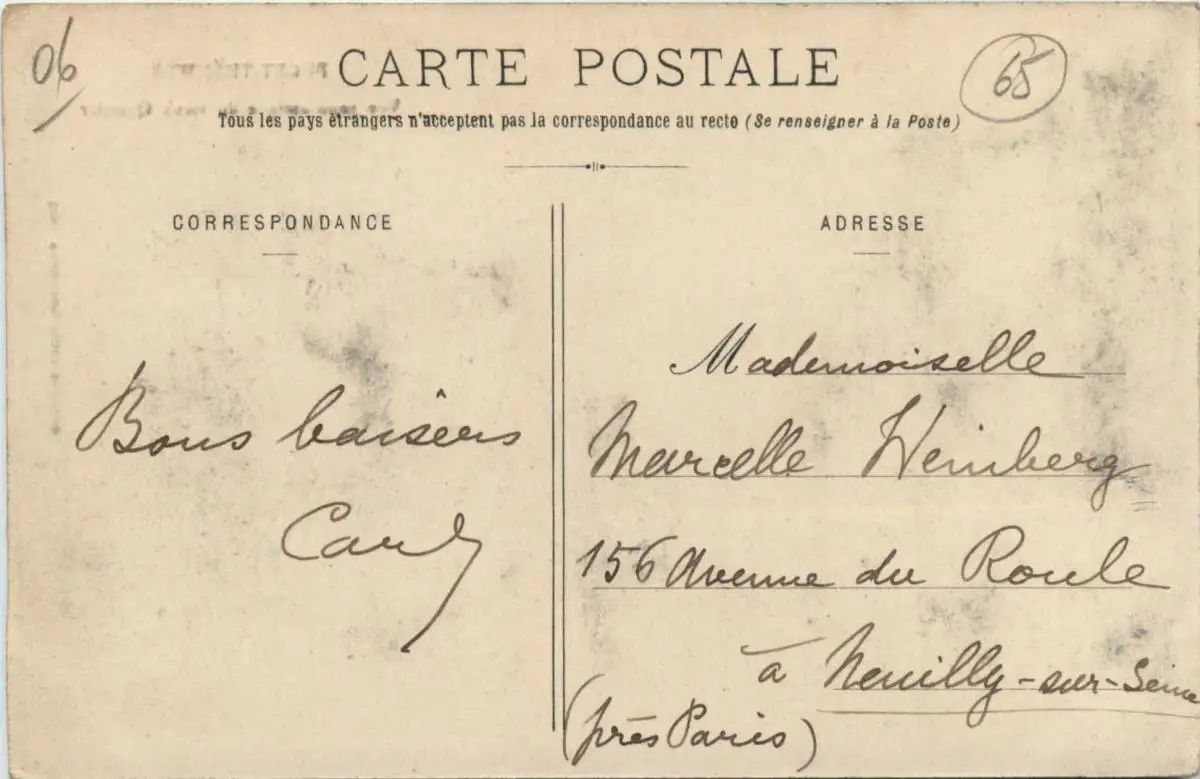 06
CARTE POSTALE
65
Tous les pays étrangers n'acceptent pas la correspondance au recto (Se renseigner à la Poste)
CORRESPONDANCE
ADRESSE
Bons baisers
Carly
Mademoiselle
Marcelle Weinberg
156 Avenue du Roule
à Neuilly-sur-Seine
(près Paris)